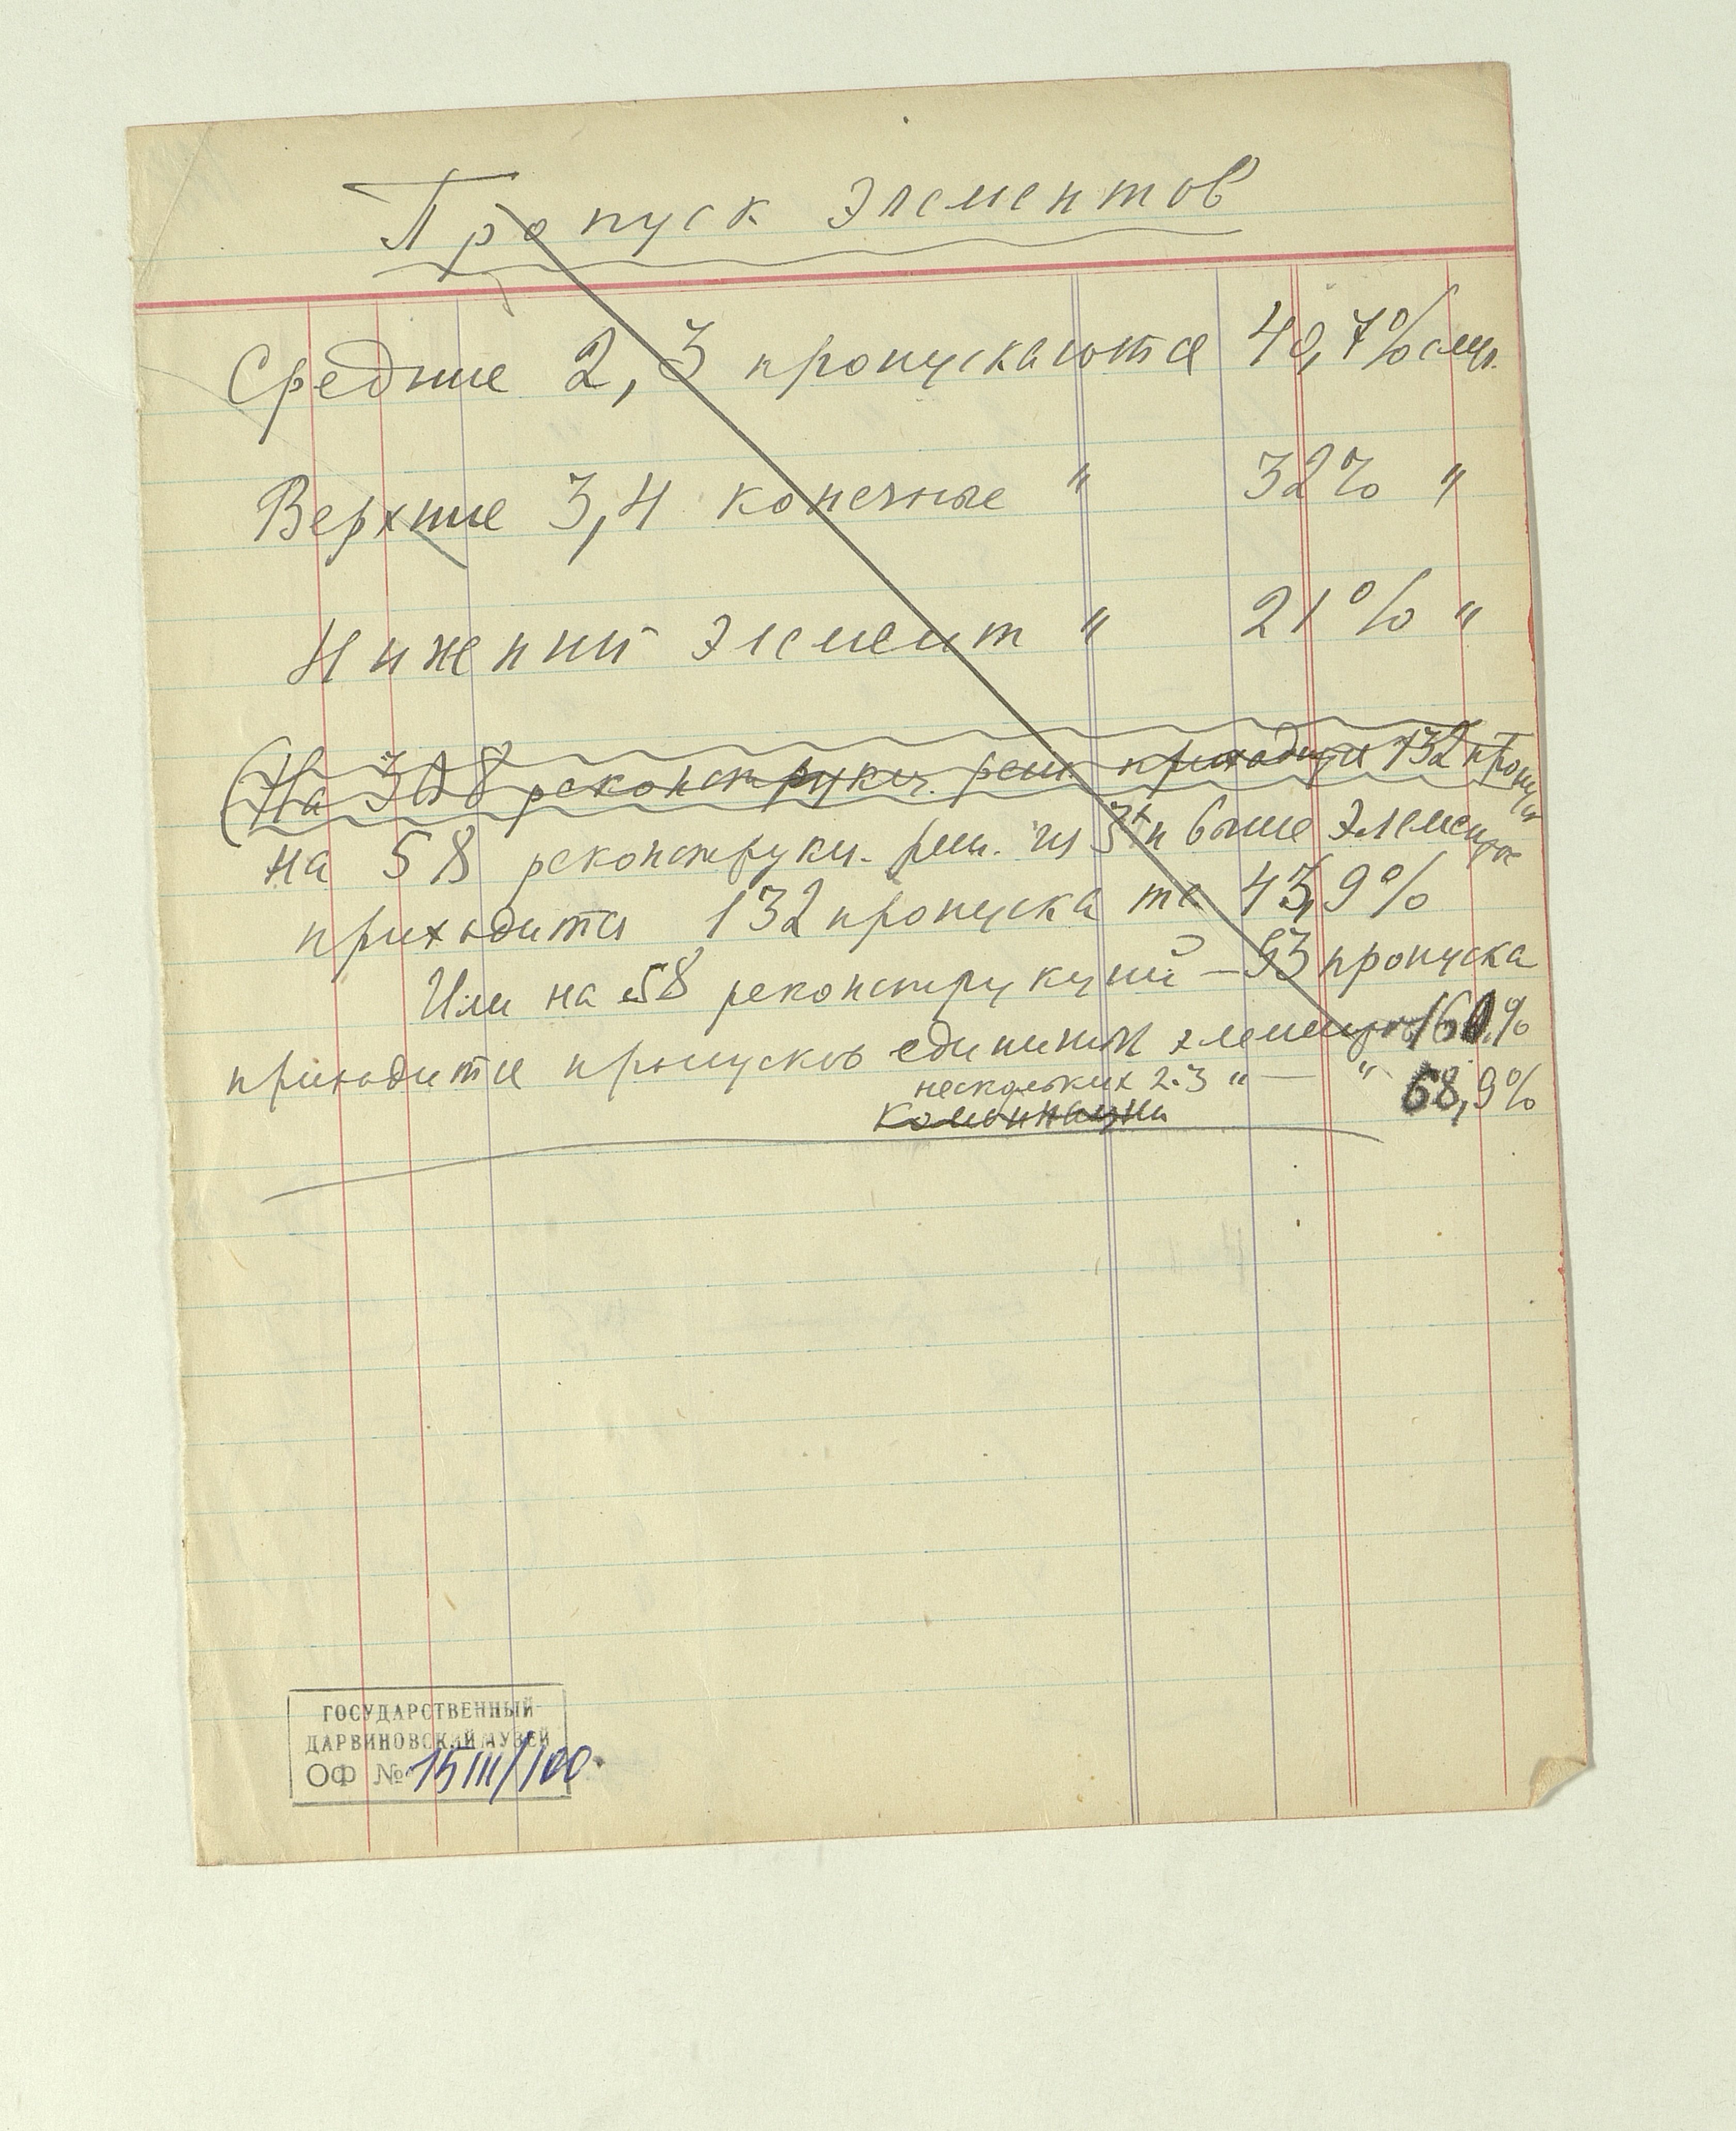 Пропуск элементов
Средние 2,3 пропускаются 40,7% случ.
Верхние 3,4 конечные " 32% "
Нижний элемент " 21% "
(На 308 реконструкц. реш. приходится 132 пропуск
на 58 реконструкц. реш. из 3х и выше элементов
приходится 132 пропуска те 43,9%
Или на 58 реконструкций — 93 пропуска
приходится пропусков единичн элементов 160,%
нескольких 2-3 " — " 68,9%
комбинации
ГОСУДАРСТВЕННЫЙ
ДАРВИНОВСКИЙ МУЗЕЙ
ОФ № 15111/100